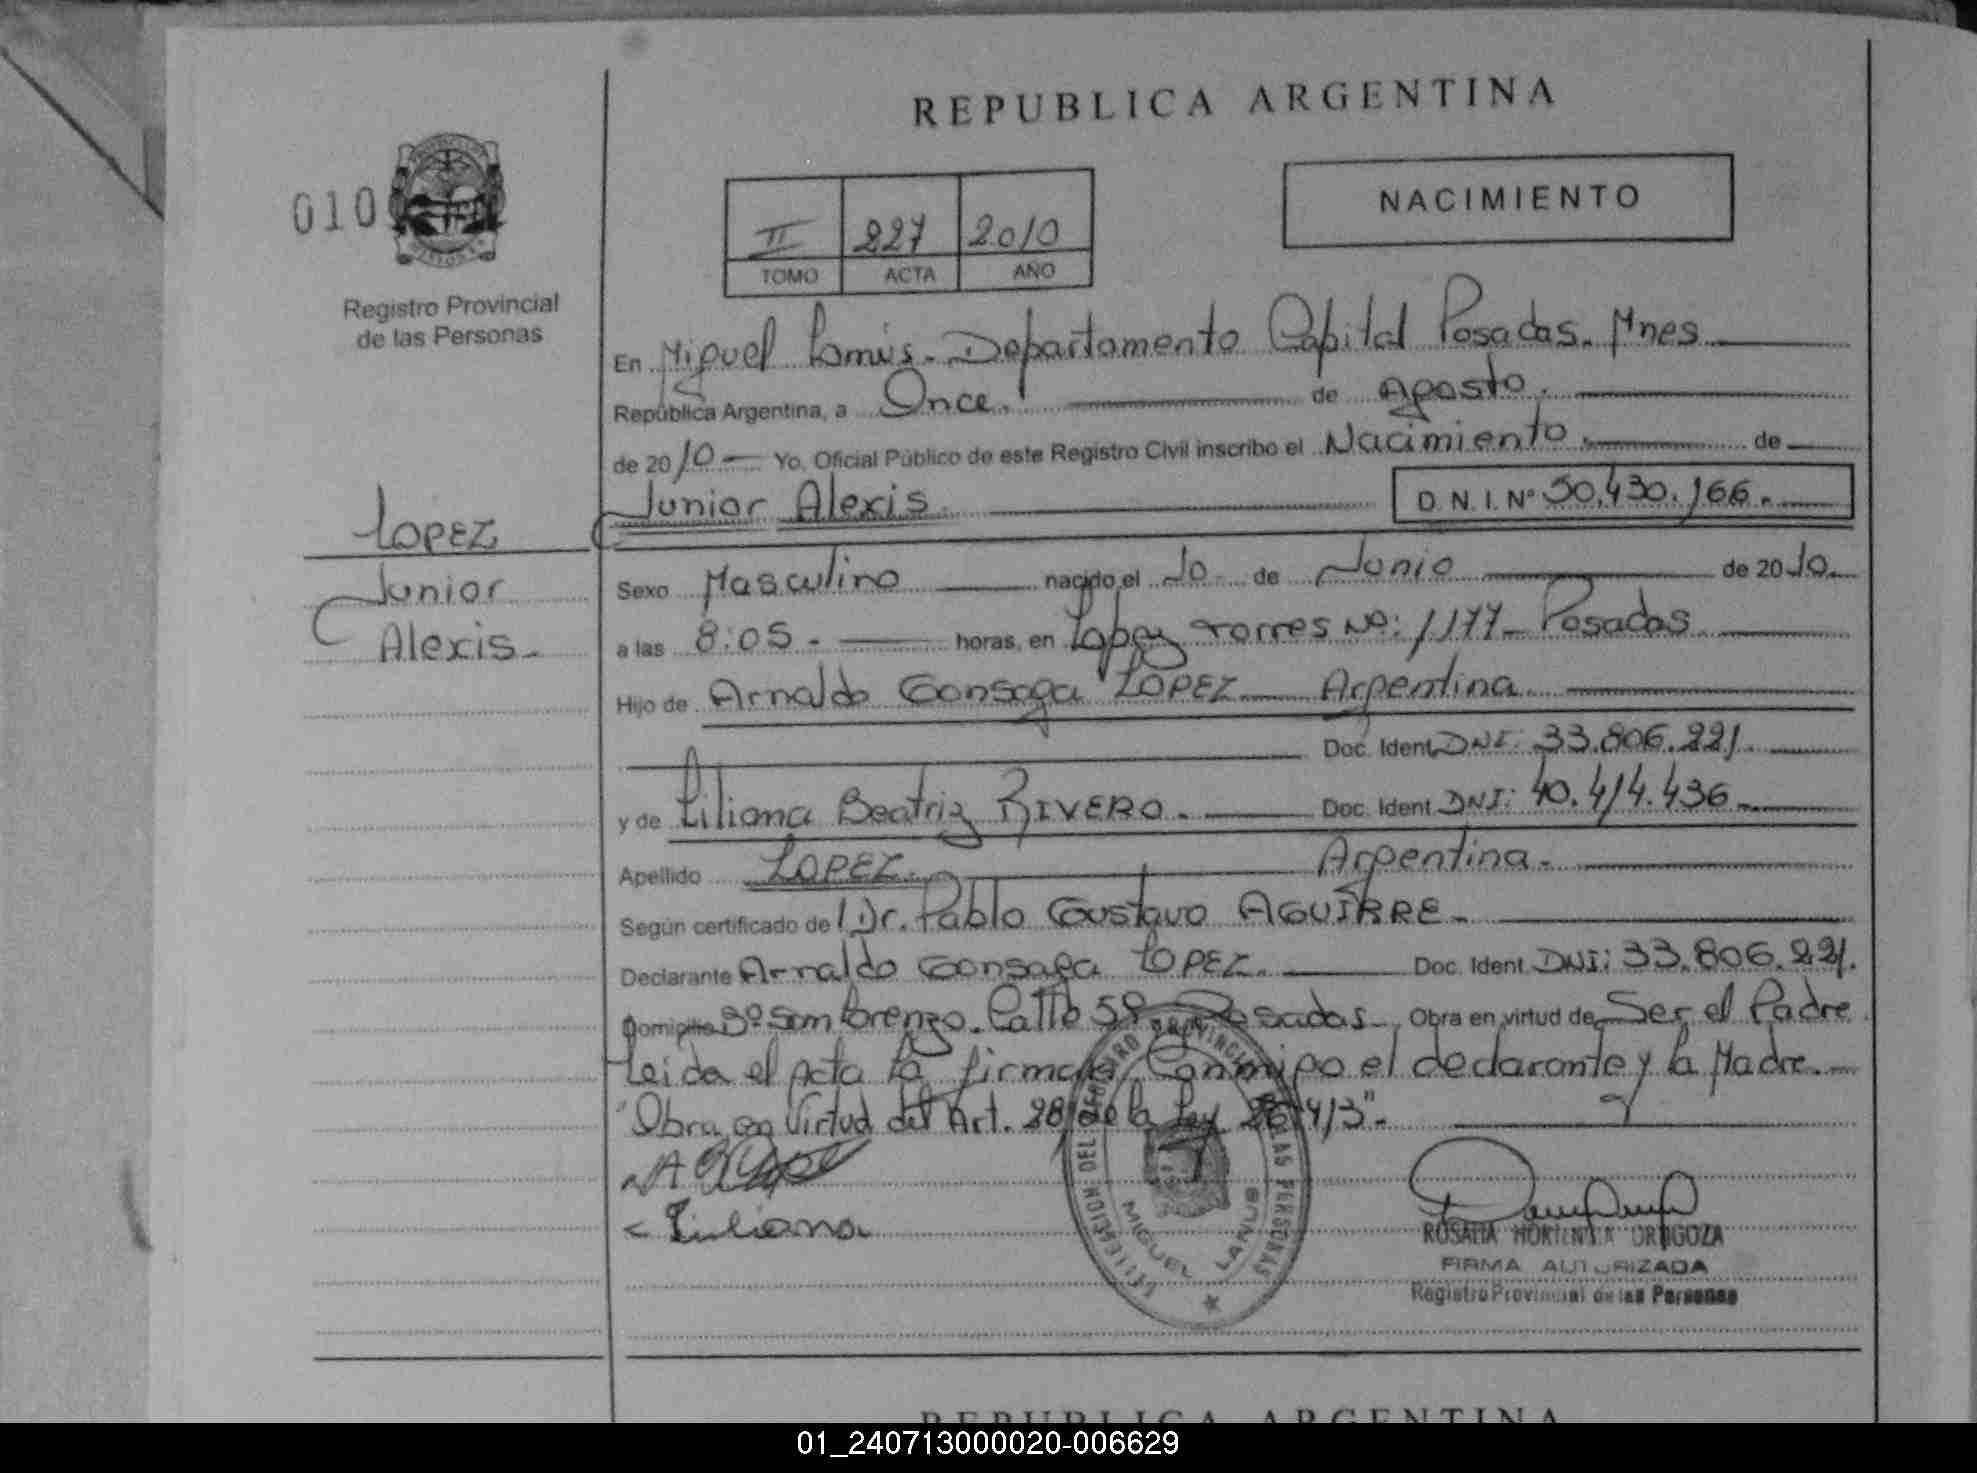 REPUBLICA ARGENTINA
010
NACIMIENTO
II 227 2010
TOMO ACTA AÑO
Registro Provincial
de las Personas
En Miguel Lanús. Departamento Capital Posadas. Mnes
República Argentina, a Once. de Agosto.
de 2010 Yo, Oficial Público de este Registro Civil inscribo el Nacimiento. de
Junior Alexis. D.N.I. Nº 50.430.166.
LOPEZ
Junior
Alexis.
Sexo Masculino nacido el 10 de Junio de 2010.
a las 8:05. horas, en Lopez Torres Nº: 1177 Posadas
Hijo de Arnaldo Gonsaga LOPEZ Argentina
Doc. Ident. DNI: 33.806.221.
y de Liliana Beatriz RIVERO. Doc. Ident. DNI: 40.414.436
Apellido LOPEZ. Argentina.
Según certificado de Dr. Pablo Gustavo AGUIRRE
Declarante Arnaldo Gonsaga LOPEZ. Doc. Ident. DNI: 33.806.221.
Domicilio Bº San Lorenzo. Calle 59 Posadas Obra en virtud de Ser el Padre
Leida el acta la firman Conmigo el declarante y la Madre.
"Obra en Virtud del Art. 28 de la Ley 26.413".
Liliana
DELEGACION DEL REGISTRO PROVINCIAL DE LAS PERSONAS
MIGUEL LANUS
ROSALIA HORTENSIA ORTIGOZA
FIRMA AUTORIZADA
Registro Provincial de las Personas
REPUBLICA ARGENTINA
01_240713000020-006629